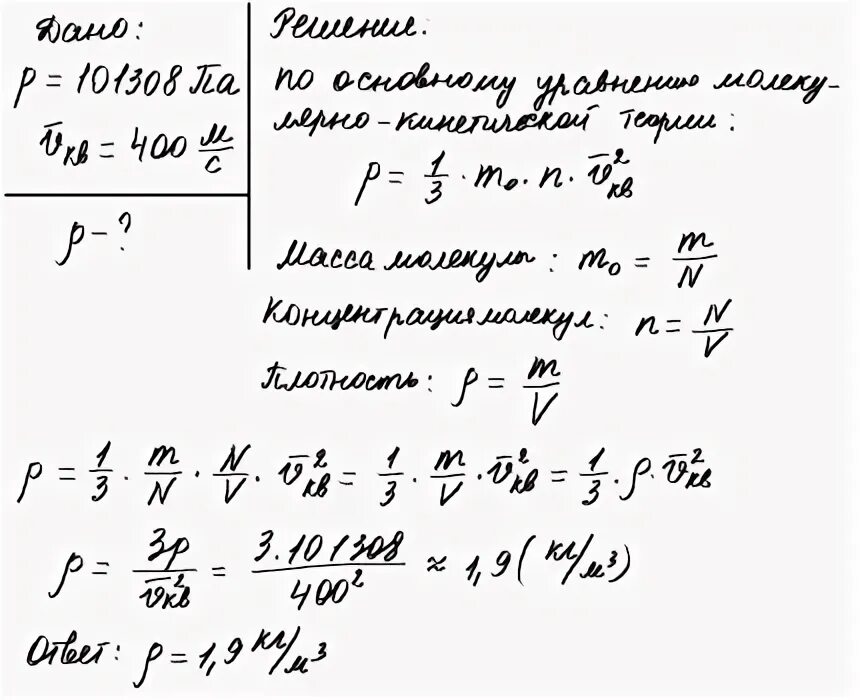 Дано:
p = 101308 Па
v̄кв = 400 м/с
ρ - ?
Решение:
по основному уравнению молеку-
лярно-кинетической теории:
p = 1/3 · m₀ · n · v̄²кв
Масса молекулы: m₀ = m/N
Концентрация молекул: n = N/V
Плотность: ρ = m/V
p = 1/3 · m/N · N/V · v̄²кв = 1/3 · m/V · v̄²кв = 1/3 · ρ · v̄²кв
ρ = 3p/v̄²кв = 3·101308/400² ≈ 1,9 (кг/м³)
Ответ: ρ = 1,9 кг/м³